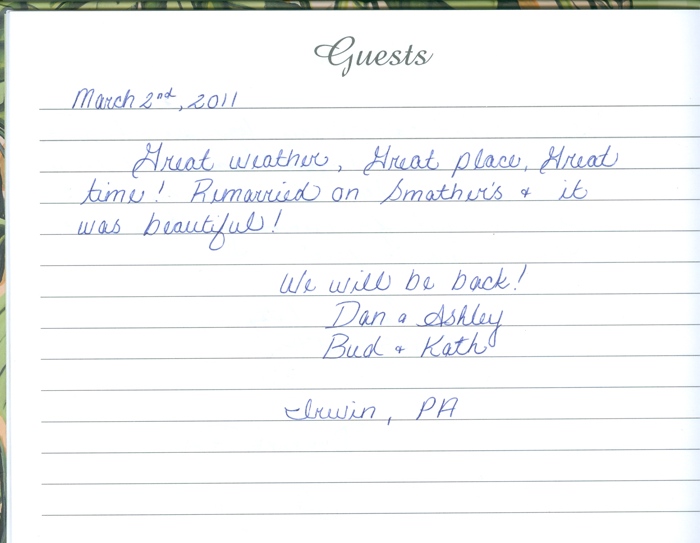 Guests
March 2nd, 2011
Great weather, Great place, Great
time! Remarried on Smather's & it
was beautiful!
We will be back!
Dan & Ashley
Bud & Kath
Irwin, PA